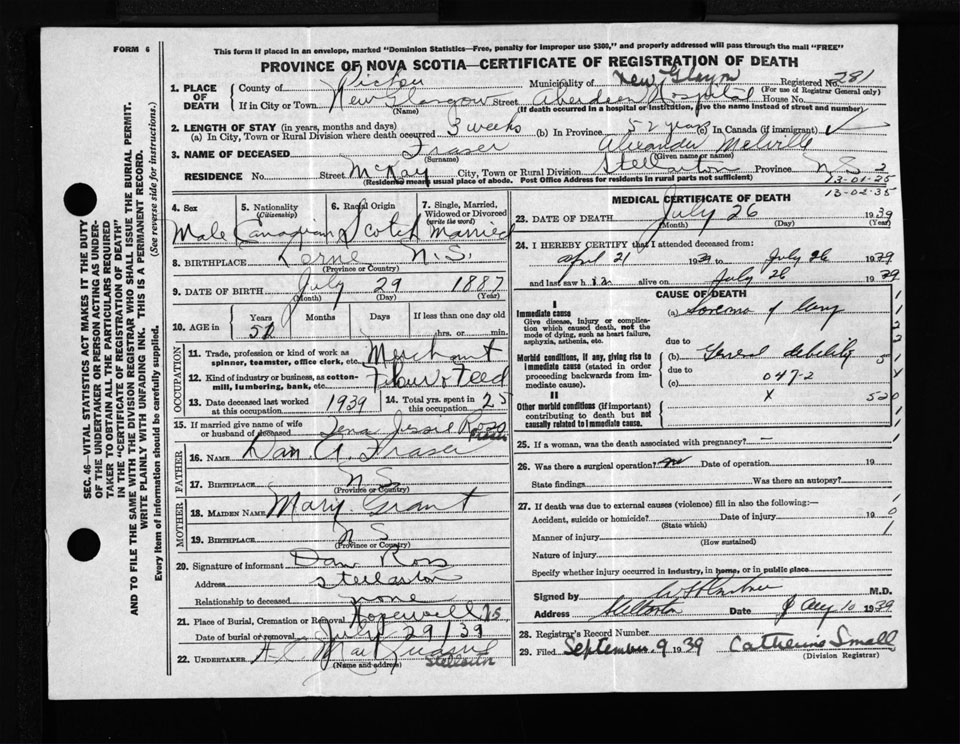 FORM 6
This form if placed in an envelope, marked "Dominion Statistics—Free, penalty for improper use $300," and properly addressed will pass through the mail "FREE"
PROVINCE OF NOVA SCOTIA—CERTIFICATE OF REGISTRATION OF DEATH
SEC. 46—VITAL STATISTICS ACT MAKES IT THE DUTY
OF THE UNDERTAKER OR PERSON ACTING AS UNDER-
TAKER TO OBTAIN ALL THE PARTICULARS REQUIRED
IN THE "CERTIFICATE OF REGISTRATION OF DEATH"
AND TO FILE THE SAME WITH THE DIVISION REGISTRAR WHO SHALL ISSUE THE BURIAL PERMIT.
WRITE PLAINLY WITH UNFADING INK. THIS IS A PERMANENT RECORD.
Every item of Information should be carefully supplied. (See reverse side for instructions.)
1. PLACE OF DEATH County of Pictou Municipality of New Glasgow Registered No. 281
(For use of Registrar General only)
If in City or Town New Glasgow Street Aberdeen Hospital House No.
(Name) (If death occurred in a hospital or institution, give the name instead of street and number)
2. LENGTH OF STAY (in years, months and days)
(a) In City, Town or Rural Division where death occurred 3 weeks (b) In Province 52 years (c) In Canada (if immigrant)
3. NAME OF DECEASED Fraser Alexander Melville
(Surname) (Given name or names)
RESIDENCE No. Street McKay City, Town or Rural Division Stellarton Province N S 2
(Residence means usual place of abode. Post Office Address for residents in rural parts not sufficient)
13-01-25
13-02-35
4. Sex 5. Nationality (Citizenship) 6. Racial Origin 7. Single, Married, Widowed or Divorced (write the word)
Male Canadian Scotch Married
8. BIRTHPLACE Lorne N.S.
(Province or Country)
9. DATE OF BIRTH July 29 1887
(Month) (Day) (Year)
10. AGE in Years Months Days If less than one day old
52 hrs. or min.
OCCUPATION
11. Trade, profession or kind of work as spinner, teamster, office clerk, etc. Merchant
12. Kind of industry or business, as cotton-mill, lumbering, bank, etc. Flour & Feed
13. Date deceased last worked at this occupation 1939 14. Total yrs. spent in this occupation 25
15. If married give name of wife or husband of deceased Lena Jessie Ross
FATHER
16. NAME Dan A. Fraser
17. BIRTHPLACE N S
(Province or Country)
MOTHER
18. MAIDEN NAME Mary Grant
19. BIRTHPLACE N S
(Province or Country)
20. Signature of informant Dan Ross
Address Stellarton
Relationship to deceased none
21. Place of Burial, Cremation or Removal Hopewell NS
Date of burial or removal July 29/39
22. UNDERTAKER
(Name and address) Stellarton
MEDICAL CERTIFICATE OF DEATH
23. DATE OF DEATH July 26 1939
(Month) (Day) (Year)
24. I HEREBY CERTIFY that I attended deceased from:
April 21 1939 to July 26 1939
and last saw him alive on July 26 1939
CAUSE OF DEATH
I
Immediate cause
Give disease, injury or complication which caused death, not the mode of dying, such as heart failure, asphyxia, asthenia, etc.
(a) Sarcoma of lung
due to
Morbid conditions, if any, giving rise to immediate cause (stated in order proceeding backwards from immediate cause).
(b) General debility
due to
(c) 047-2
II
Other morbid conditions (if important) contributing to death but not causally related to immediate cause.
x
520
25. If a woman, was the death associated with pregnancy? —
26. Was there a surgical operation? no Date of operation 19
State findings Was there an autopsy?
27. If death was due to external causes (violence) fill in also the following:—
Accident, suicide or homicide? Date of injury 19
(State which)
Manner of injury
(How sustained)
Nature of injury
Specify whether injury occurred in industry, in home, or in public place
Signed by M.D.
Address Stellarton Date Aug 10 1939
28. Registrar's Record Number
29. Filed September 9 1939 Catherine Small
(Division Registrar)